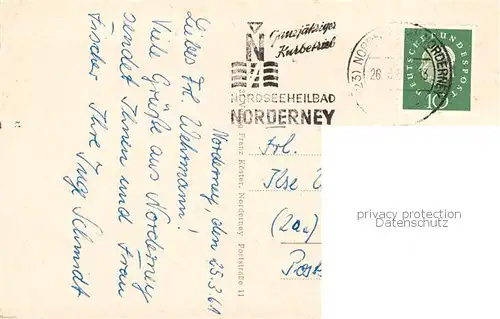 Norderney, den 25.3.61
Liebes Frl. Wehrmann!
Viele Grüße aus Norderney
sendet Ihnen und Frau
Fischer Ihre Inge Schmidt
Ganzjähriger
Kurbetrieb
N
NORDSEEHEILBAD
NORDERNEY
(23) NORDERNEY
26.3.
DEUTSCHE BUNDESPOST
10
Franz Köster, Norderney, Poststraße 11
Frl.
Ilse
(2
Post
privacy protection
DarnokMedia.com